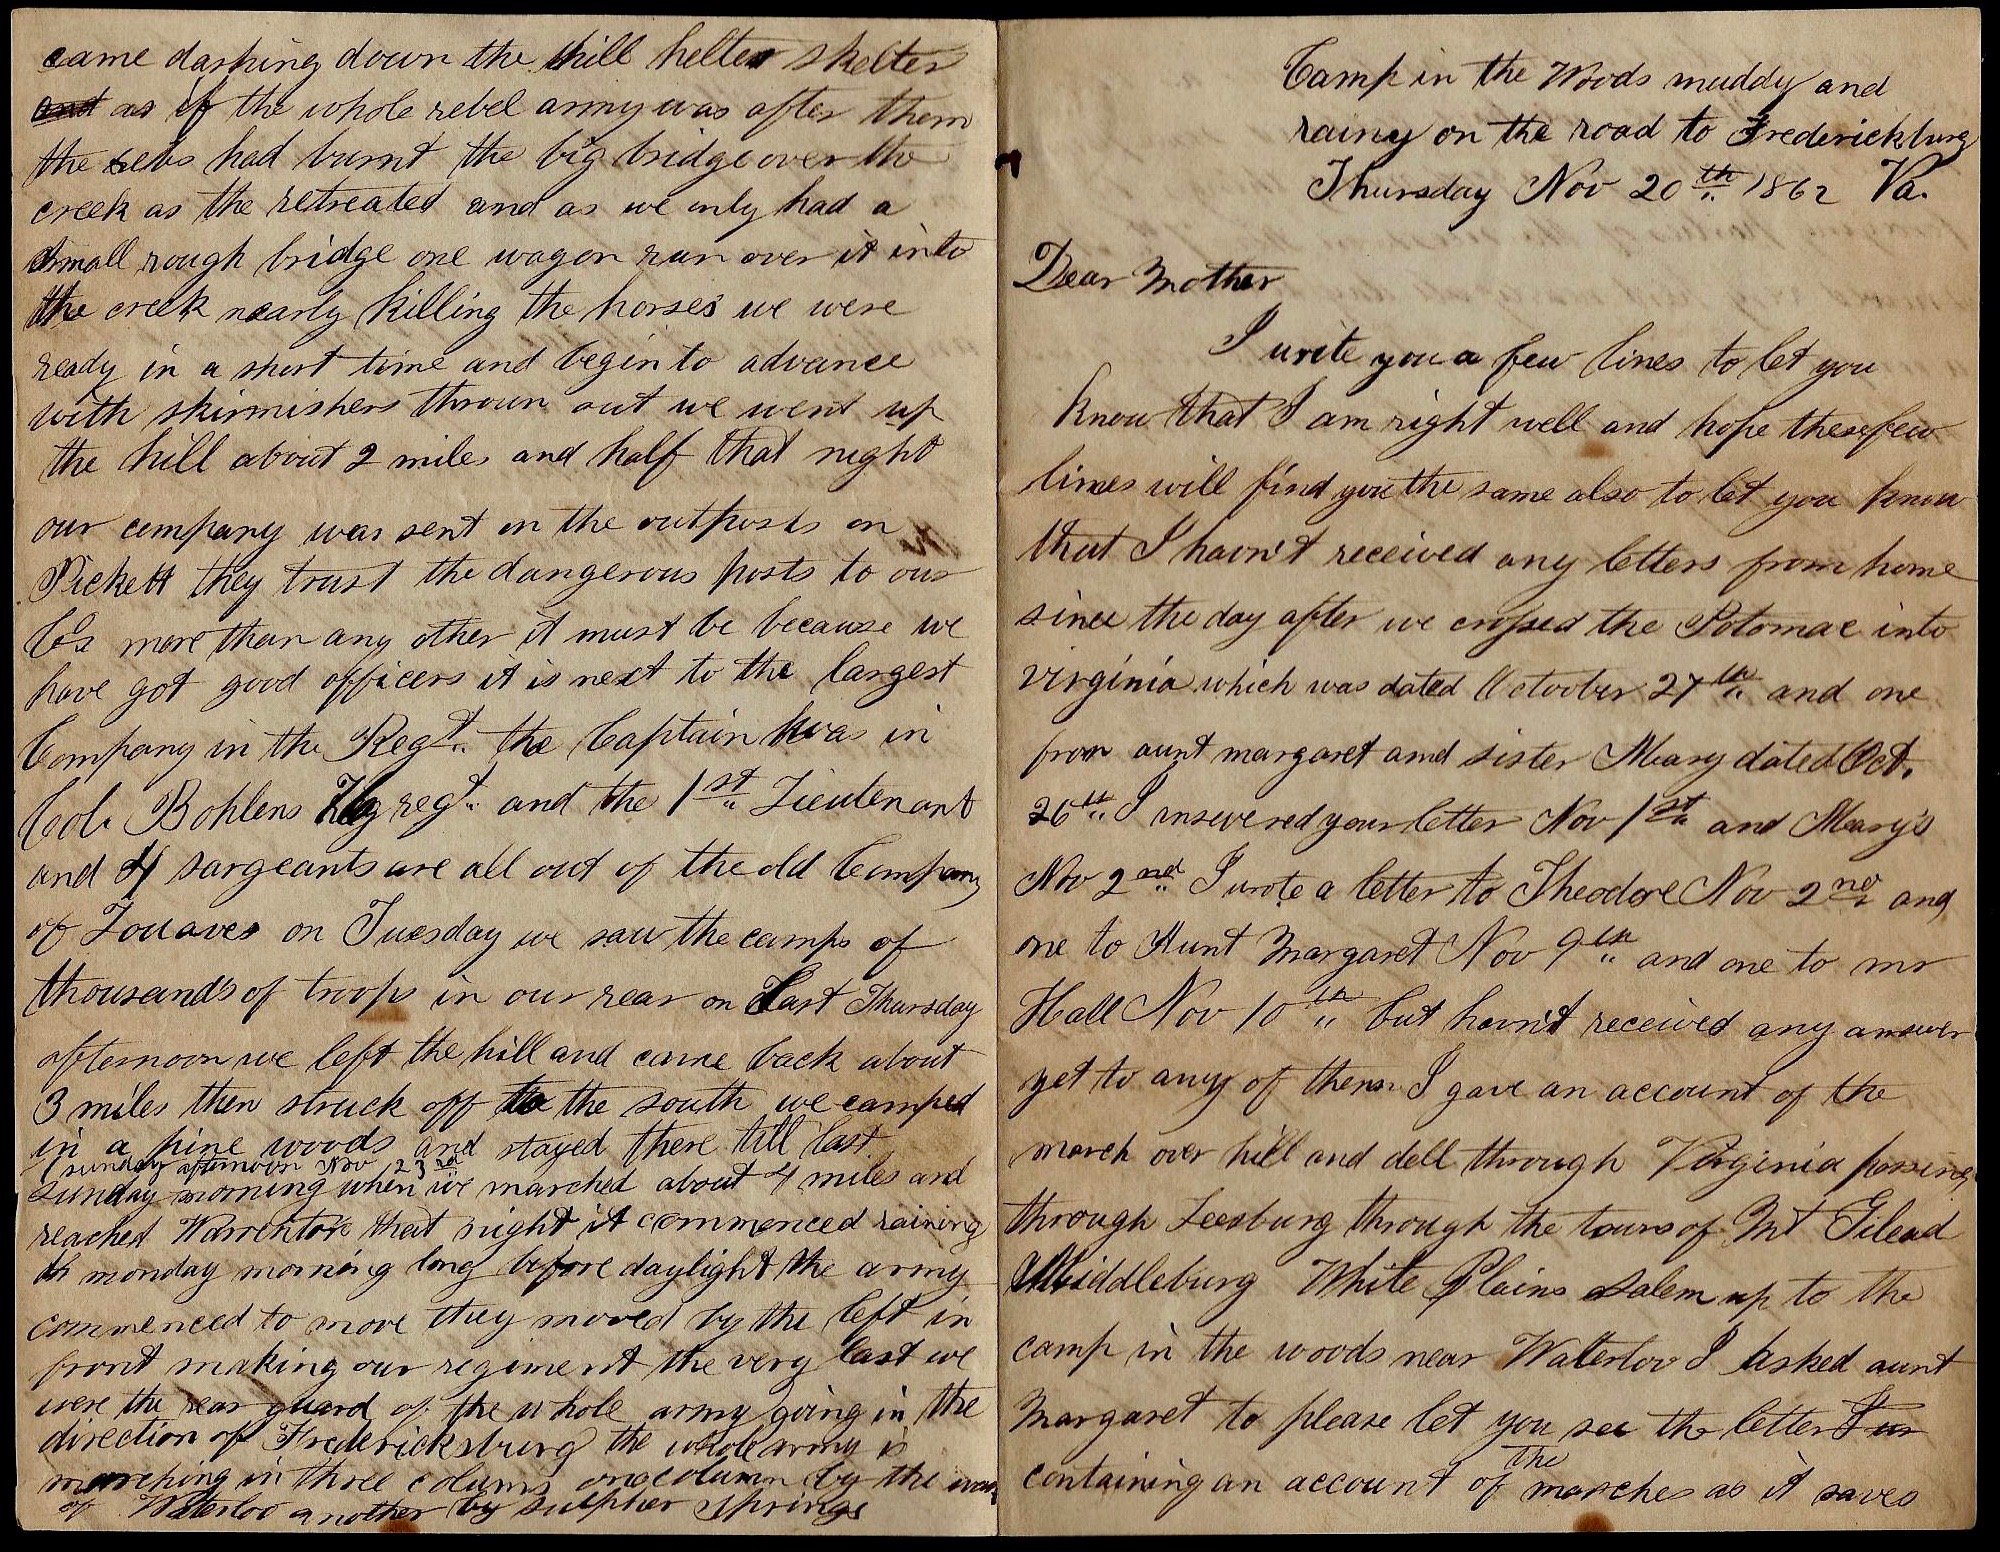 came dashing down the hill helter skelter
and as if the whole rebel army was after them
the rebs had burnt the big bridge over the
creek as the retreated and as we only had a
small rough bridge one wagon run over it into
the creek nearly killing the horses we were
ready in a short time and begin to advance
with skirmishers thrown out we went up
the hill about 2 miles and half that night
our company was sent on the outposts on
Pickett they trust the dangerous posts to our
Co's more than any other it must be because we
have got good officers it is next to the largest
Company in the Regt. the Captain was in
Col. Bohlens regt. and the 1st Lieutenant
and 4 sargeants are all out of the old Company
of Zouaves on Tuesday we saw the camps of
thousands of troops in our rear on Last Thursday
afternoon we left the hill and came back about
3 miles then struck off to the south we camped
in a pine woods and stayed there till last
(sunday afternoon Nov 23rd
sunday morning when we marched about 4 miles and
reached Warrenton that night it commenced raining
on monday morning long before daylight the army
commenced to move they moved by the left in
front making our regiment the very last we
were the rear guard of the whole army going in the
direction of Fredericksburg the whole army is
marching in three colums one column by the way
of Waterloo another by sulpher springs
Camp in the Woods muddy and
rainy on the road to Fredericksburg
Thursday Nov 20th 1862 Va.
Dear Mother
I write you a few lines to let you
know that I am right well and hope these few
lines will find you the same also to let you know
that I havn't received any letters from home
since the day after we crossed the Potomac into
virginia which was dated Octoober 27th and one
from aunt margaret and sister Mary dated Oct.
26th I answered your letter Nov 1st and Mary's
Nov 2nd I wrote a letter to Theodore Nov 2nd and
one to Aunt Margaret Nov 9th and one to mr
Hall Nov 10th but havn't received any answer
yet to any of them I gave an account of the
march over hill and dell through Virginia passing
through Leesburg through the towns of Mt Gilead
Middleburg White Plains Salem up to the
camp in the woods near Waterloo I asked aunt
Margaret to please let you see the letter I w
containing an account of the marches as it saves